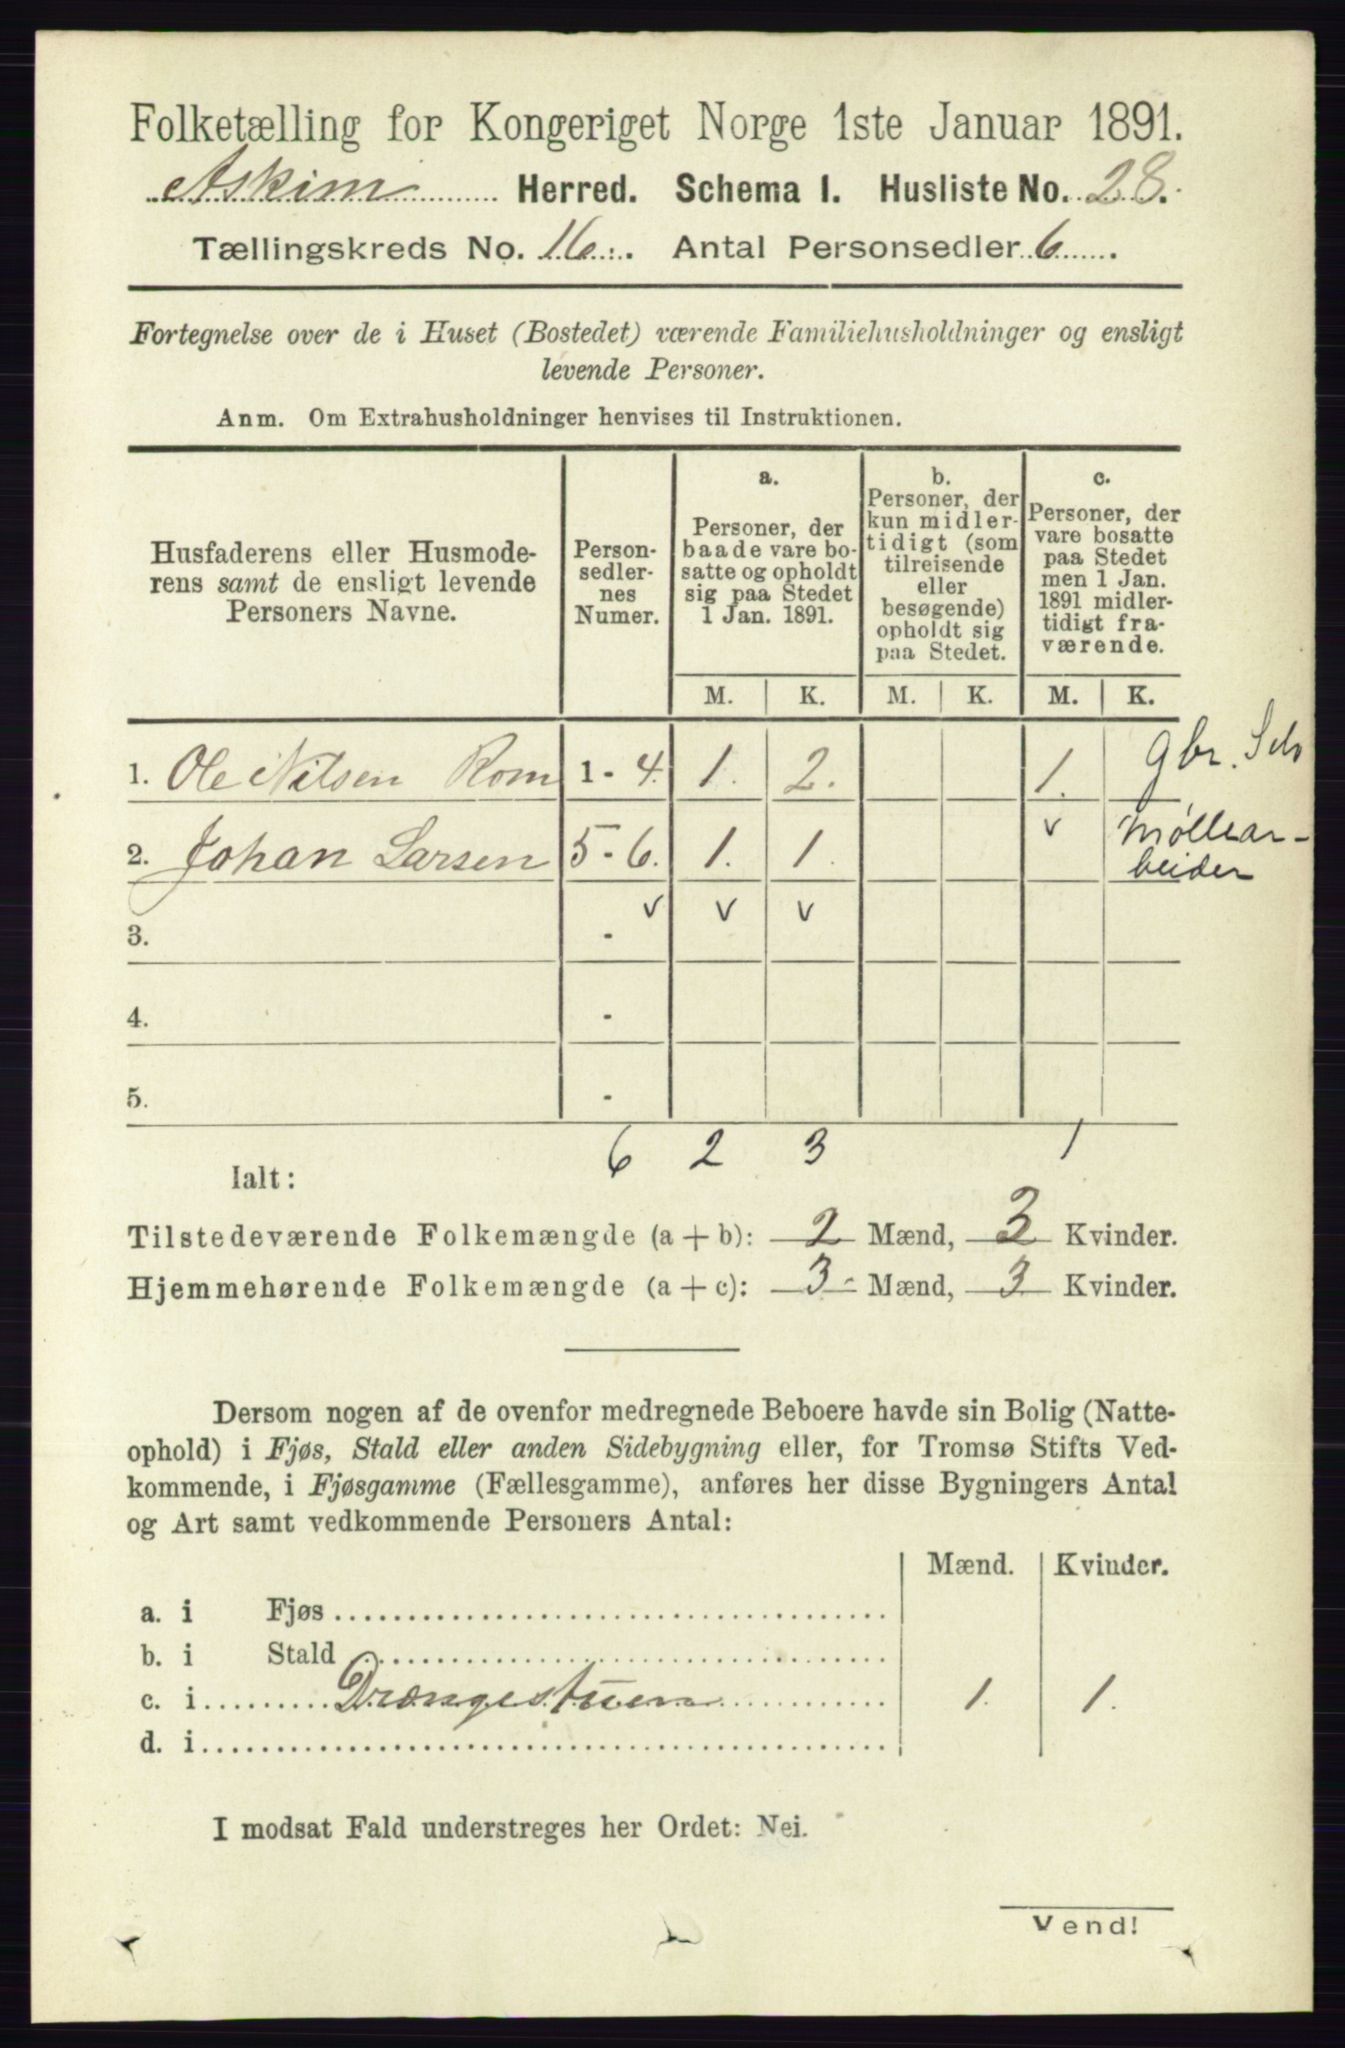 Folketælling for Kongeriget Norge 1ste Januar 1891.
Askim Herred. Schema I. Husliste No. 28.
Tællingskreds No. 16. Antal Personsedler 6
Fortegnelse over de i Huset (Bostedet) værende Familiehusholdninger og ensligt
levende Personer.
Anm. Om Extrahusholdninger henvises til Instruktionen.
Husfaderens eller Husmode-
rens samt de ensligt levende
Personers Navne.
Person-
sedler-
nes
Numer.
a.
Personer, der
baade vare bo-
satte og opholdt
sig paa Stedet
1 Jan. 1891.
b.
Personer, der
kun midler-
tidigt (som
tilreisende
eller
besøgende)
opholdt sig
paa Stedet.
c.
Personer, der
vare bosatte
paa Stedet
men 1 Jan.
1891 midler-
tidigt fra-
værende.
M. K. M. K. M. K.
1. Ole Nilsen Rom 1 - 4. 1. 2. 1. gbr. Selv
2. Johan Larsen 5 - 6. 1. 1. v Møllear-
beider
v v v
3. -
4. -
5. -
6 2 3 1
Ialt:
Tilstedeværende Folkemængde (a + b): 2 Mænd, 3 Kvinder.
Hjemmehørende Folkemængde (a + c): 3 - Mænd, 3 Kvinder.
Dersom nogen af de ovenfor medregnede Beboere havde sin Bolig (Natte-
ophold) i Fjøs, Stald eller anden Sidebygning eller, for Tromsø Stifts Ved-
kommende, i Fjøsgamme (Fællesgamme), anføres her disse Bygningers Antal
og Art samt vedkommende Personers Antal:
Mænd. Kvinder.
a. i Fjøs
b. i Stald
c. i Drængestuen 1. 1.
d. i
I modsat Fald understreges her Ordet: Nei.
Vend!